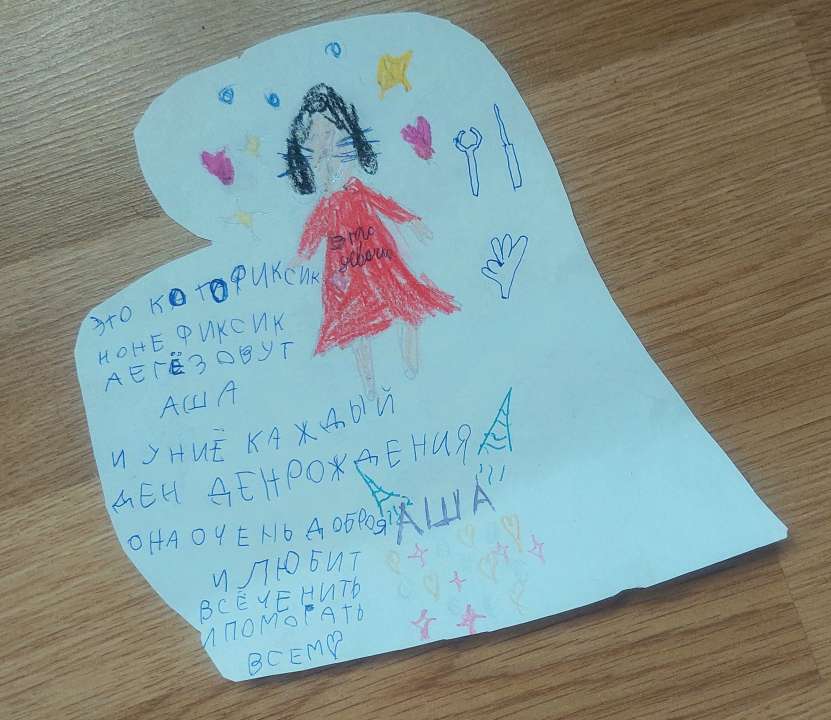 это
девочка
ЭТО КОТОФИКСИК
НОНЕ ФИКСИК
А ЕГЁ ЗОВУТ
АША
И УНИЁ КАЖДЫЙ
ДЕН ДЕНРОЖДЕНИЯ
ОНА ОЧЕНЬ ДОБРОЯ
АША
И ЛЮБИТ
ВСЁ ЧЕНИТЬ
И ПОМОГАТЬ
ВСЕМ